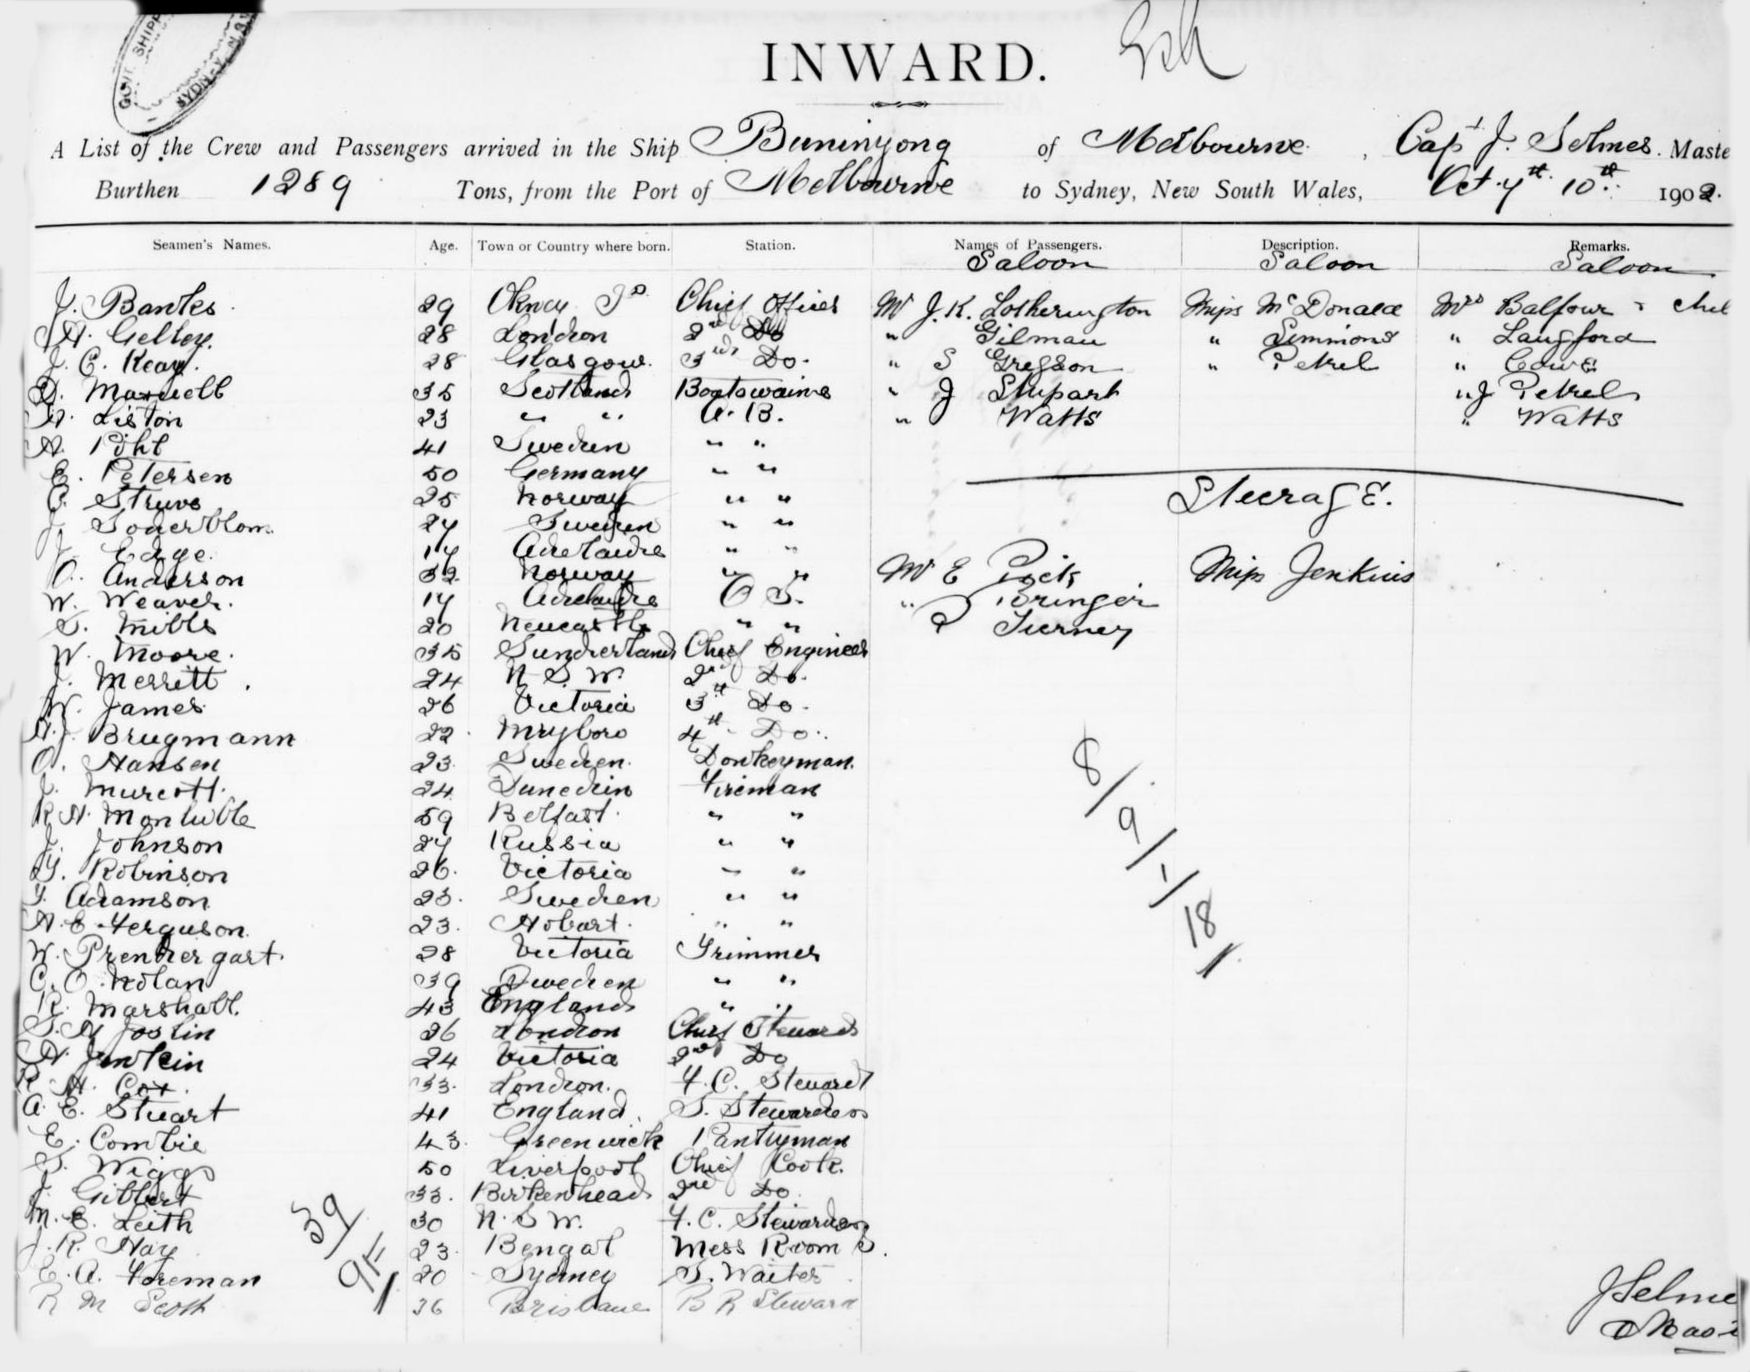 GOVT SHIPP
SYDNEY N.S.W
INWARD.
A List of the Crew and Passengers arrived in the Ship Buninyong of Melbourne, Capt J. Selmes. Maste
Burthen 1289 Tons, from the Port of Melbourne to Sydney, New South Wales, Oct 10th 1902.
Seamen's Names. Age. Town or Country where born. Station. Names of Passengers. Description. Remarks.
Saloon Saloon Saloon
J. Banks 29 Chief Officer Mr J. K. Lotherington Miss McDonald Mrs Balfour
Gelley. 28 London 2nd Do " Gilman " Simmons " Langford
J. C. Keay. 28 Glasgow. 3rd Do. " S Gregson " Petrel " Cowe
D. Maxwell 35 Scotland Boatswain " J Shipart " J Petrel
Liston 23 " " A. B. " Watts " Watts
A. Pohl 41 Sweden " "
E. Petersen 50 Germany " "
C. Struve 25 Norway " "
J. Soderblom. 27 Sweden " "
J. Edge. 17 Adelaide " "
O. Anderson 32 Norway " "
W. Weaver. 17 Adelaide O S.
S. Mills 20 Newcastle " "
W. Moore. 35 Sunderland Chief Engineer
J. Merritt. 24 N. S. W. 2nd Do.
W. James 26 Victoria 3rd Do.
Brugmann 22 Mryboro 4th Do.
O. Hansen 23 Sweden. Donkeyman.
J. Murcott. 24 Dunedin Fireman
R. H. 59 Belfast. " "
J. Johnson 27 Russia " "
Robinson 26. Victoria " "
Adamson 23. Sweden " "
A. E. Ferguson. 23. Hobart. " "
W. Prendergast. 28 Victoria Trimmer
C. O. Nolan 39 Sweden " "
R. Marshall. 43 England " "
Joslin 26 London Chief Steward
Jenkin 24 Victoria 2nd Do
R. H. Cox. 33. London. F. C. Steward
A. E. Stuart 41 England. S. Stewardess
E. Combie 43. Greenwich Pantryman
S. Wiggs 50 Liverpool Chief Cook.
J. Gilbert 33. Birkenhead 2nd Do.
M. E. Leith 30 N. S. W. F. C. Stewardess
J. R. Hay 23. Bengal Mess Room S.
E. A. Foreman 20 Sydney S. Waiter
R M Scott 36 Brisbane B R Steward
Steerage.
Mr E Pick Miss Jenkins
" Bringer
Tierney
8/9/1/18/
39
9F/
J Selme